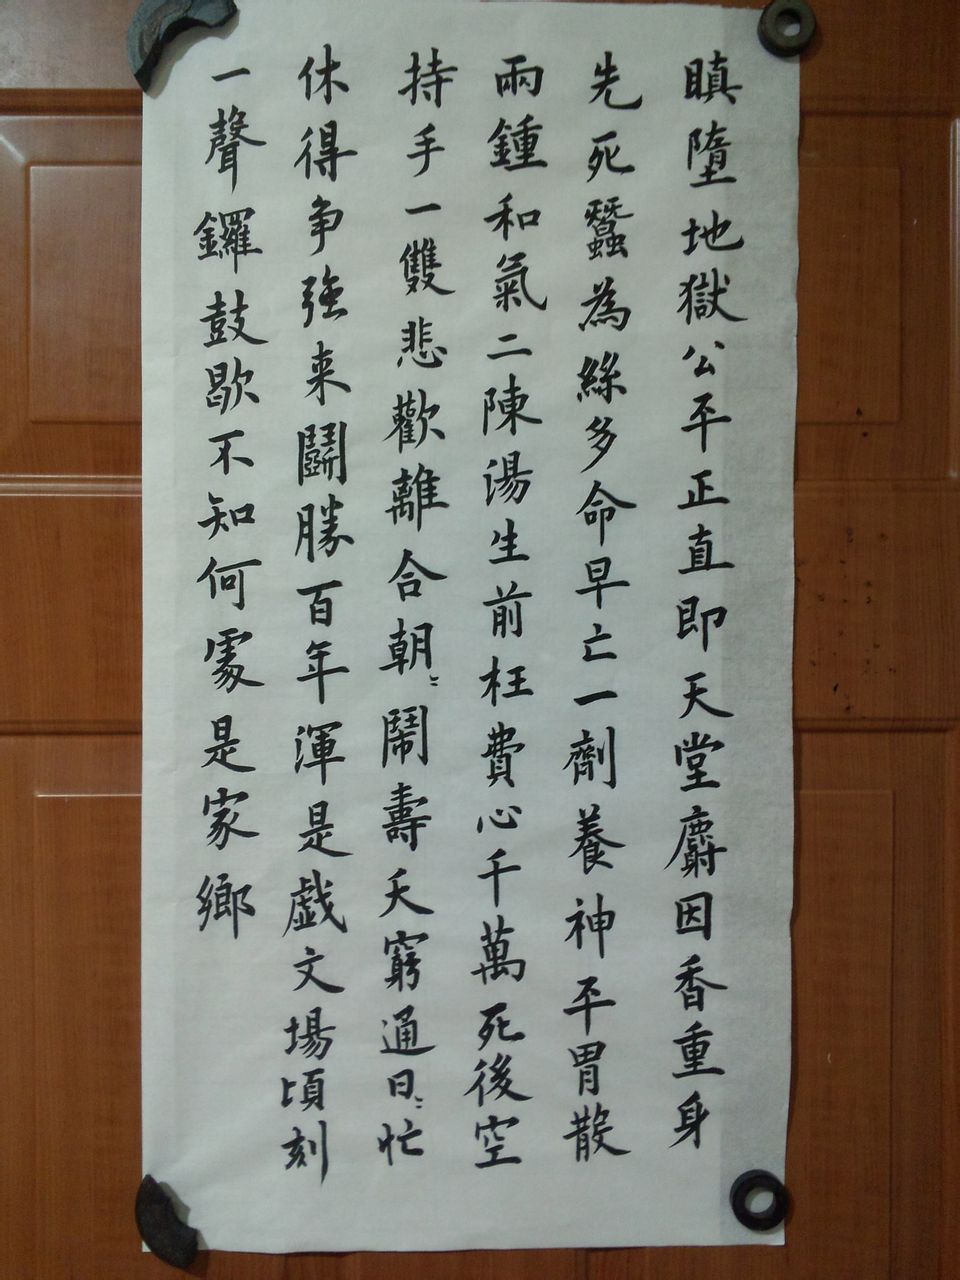 瞋墮地獄公平正直即天堂麝因香重身
先死蠶為絲多命早亡一劑養神平胃散
兩鍾和氣二陳湯生前枉費心千萬死後空
持手一雙悲歡離合朝〻鬧壽夭窮通日〻忙
休得争強来鬪勝百年渾是戯文場頃刻
一聲鑼鼓歇不知何䖏是家鄉